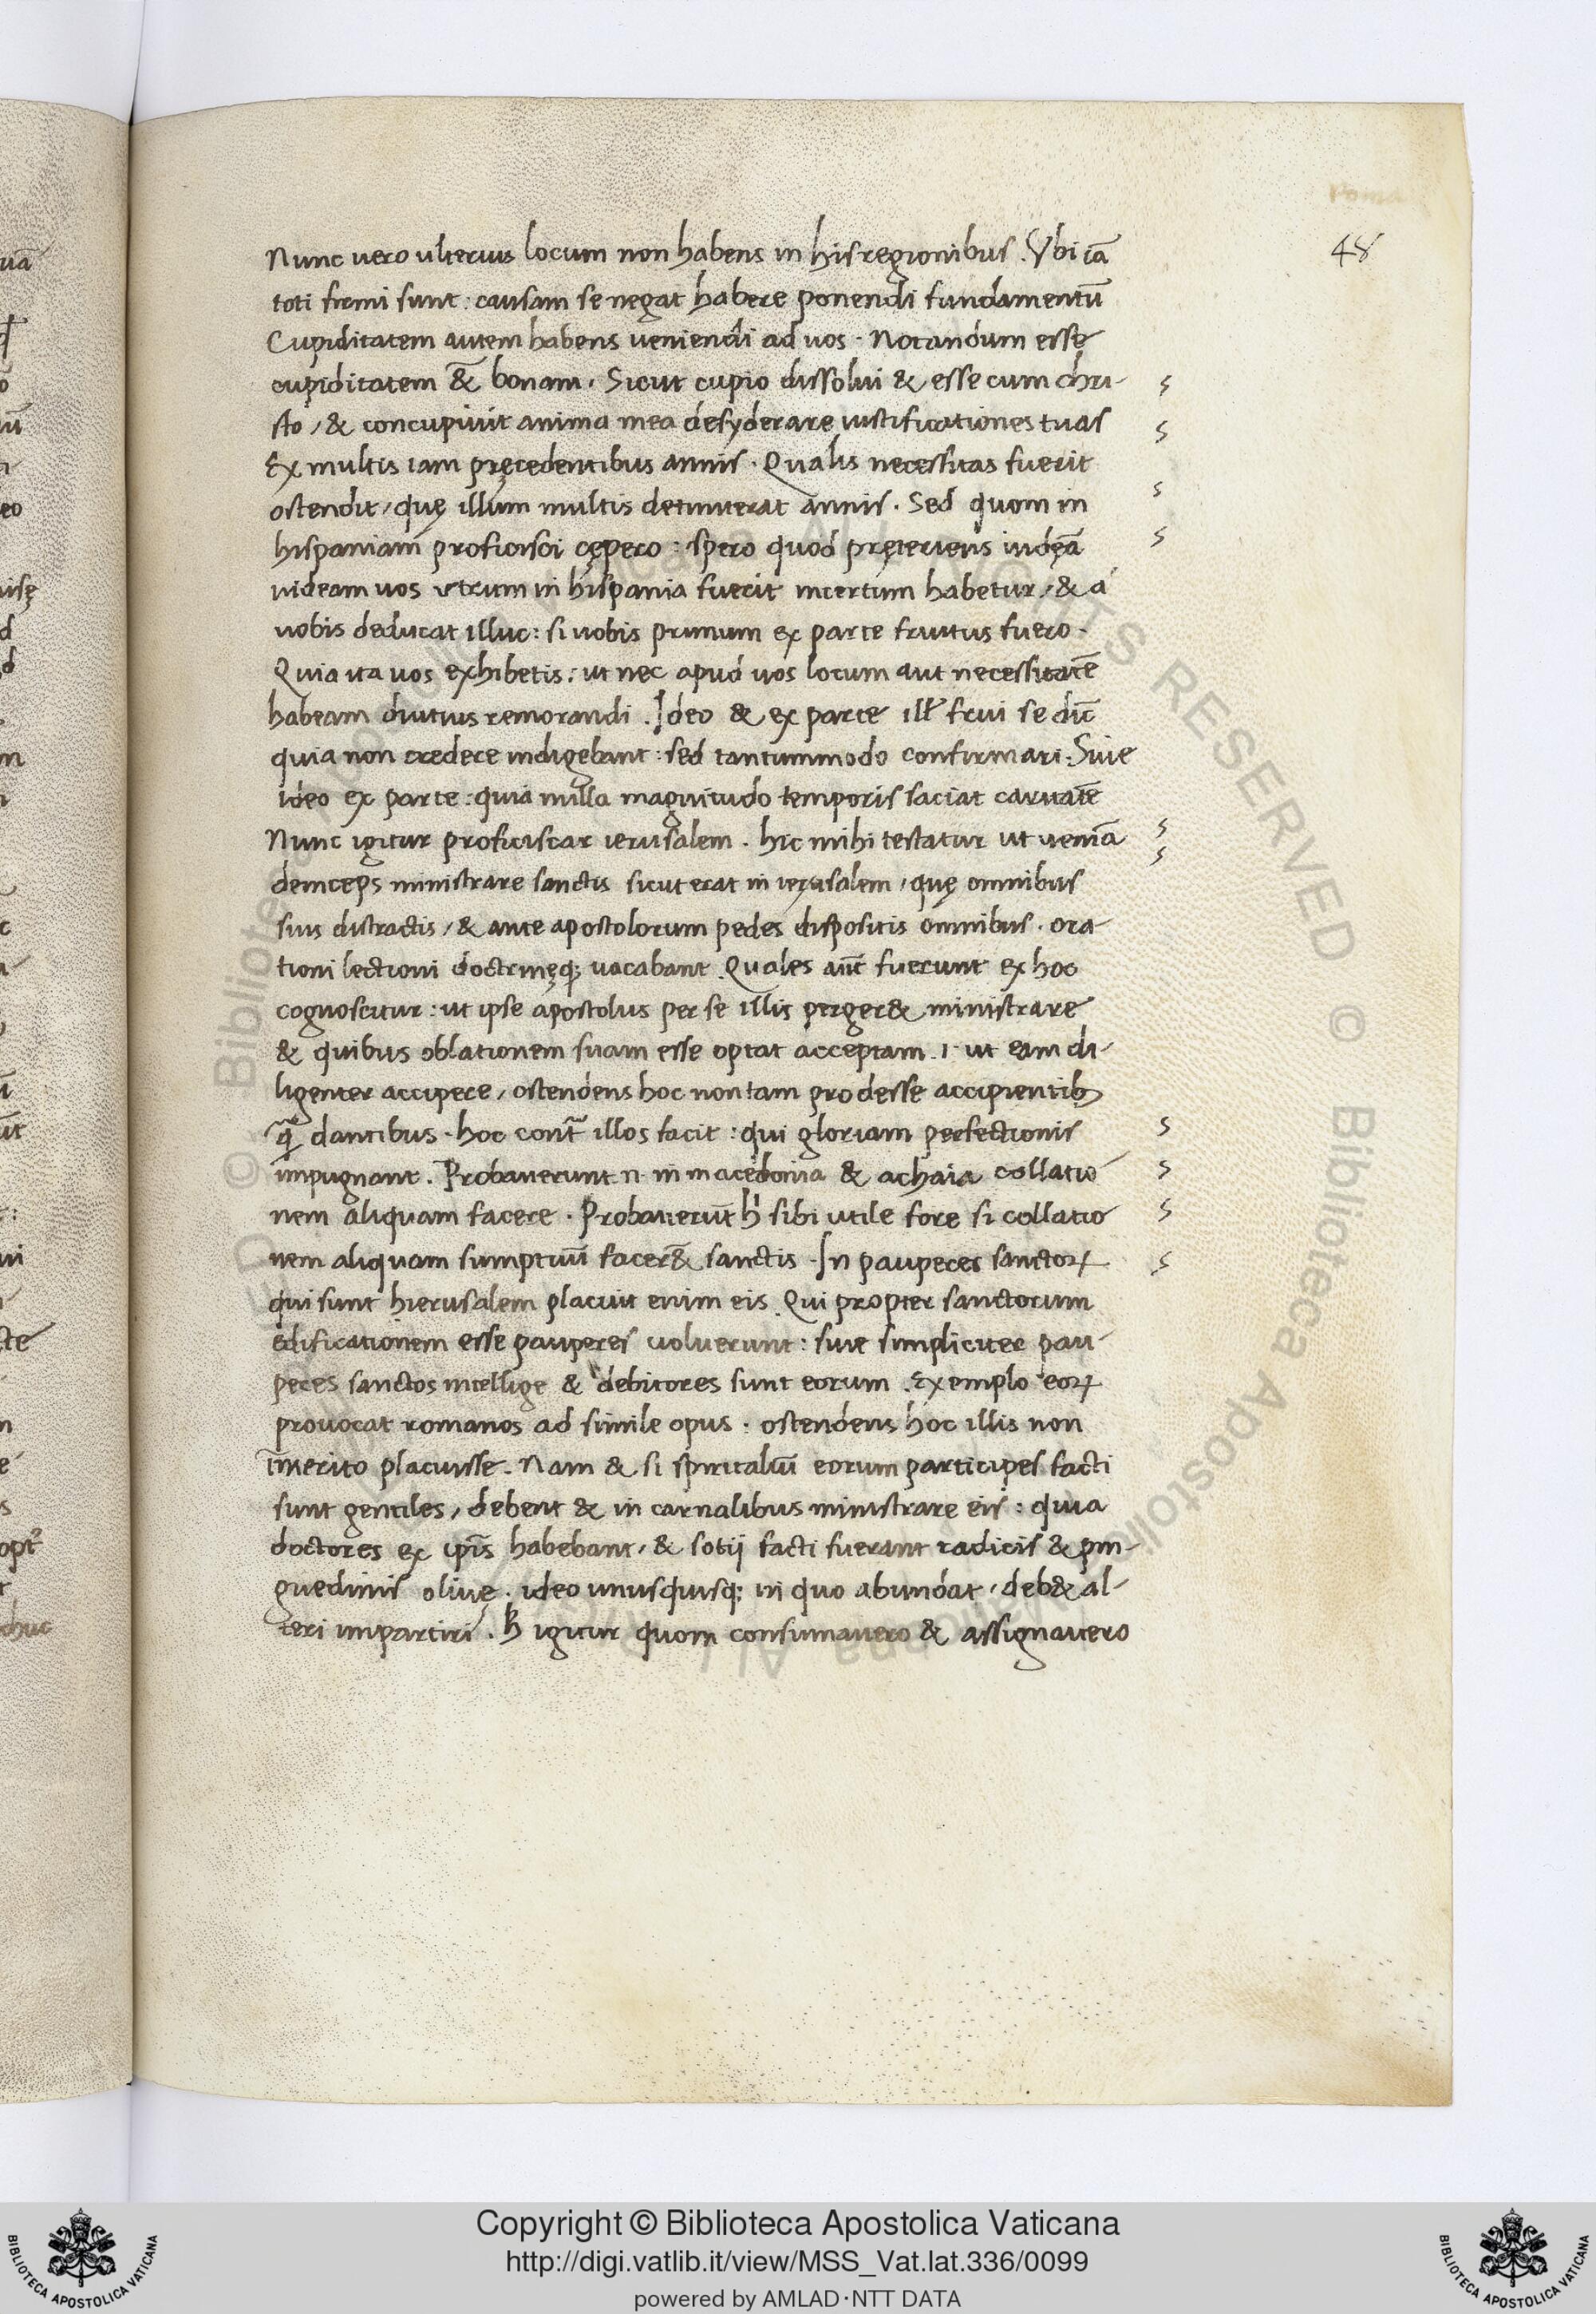 Roma
48
Nunc uero ulterius locum non habens in his regionibus. Vbi iā
toti firmi sunt: causam se negat habere ponendi fundamentū
Cupiditatem autem habens ueniendi ad uos. Notandum esse
cupiditatem & bonam. Sicut cupio dissolui & esse cum chri-
sto, & concupiuit anima mea desyderare iustificationes tuas
Ex multis iam pręcedentibus annis. Qualis necessitas fuerit
ostendit, quę illum multis detinuerat annis. Sed quom in
hispaniam proficisci cępero: spero quod pręteriens iudęā
uideam uos utrum in hispania fuerit incertum habetur, & a
uobis deducat illuc: si uobis primum ex parte fruitus fuero.
Quia ita uos exhibetis: ut nec apud uos locum aut necessitatē
habeam diutius remorandi. Ideo & ex parte ill' frui se dic̄
quia non credere indigebant: sed tantummodo confirmari. Siue
ideo ex parte: quia nulla magnitudo temporis saciat caritatē
Nunc igitur proficiscar ierusalem. hic mihi testatur ut ueniā
deinceps ministrare sanctis sicut erat in ierusalem, quę omnibus
suis distractis, & ante apostolorum pedes dispositis omnibus. ora-
tioni lectioni doctrinęq; uacabant. Quales aut̄ fuerunt ex hoc
cognoscitur: ut ipse apostolus per se illis perger& ministrare
& quibus oblationem suam esse optat acceptam. i. ut eam di-
ligenter accipere, ostendens hoc non tam prodesse accipientib;
q̄ dantibus. hoc cont̄ illos facit: qui gloriam perfectionis
impugnant. Probauerunt n. in macedonia & achaia collatio
nem aliquam facere. Probauerūt hi sibi utile fore si collatio
nem aliquam sumptuū facer& sanctis. In pauperes sanctoꝝ
qui sunt hierusalem placuit enim eis. Qui propter sanctorum
ędificationem esse pauperes uoluerunt: siue simpliciter pau-
peres sanctos intellige & debitores sunt eorum. Exemplo eoꝝ
prouocat romanos ad simile opus. ostendens hoc illis non
īmerito placuisse. Nam & si spiritaliū eorum participes facti
sunt gentiles, debent & in carnalibus ministrare eis: quia
doctores ex ip̄is habebant, & sotij facti fuerant radicis & pin-
guedinis oliuę. ideo unusquisq; in quo abundat, deb& al-
teri impartiri. h igitur quom consumauero & assignauero
Copyright © Biblioteca Apostolica Vaticana
http://digi.vatlib.it/view/MSS_Vat.lat.336/0099
powered by AMLAD·NTT DATA